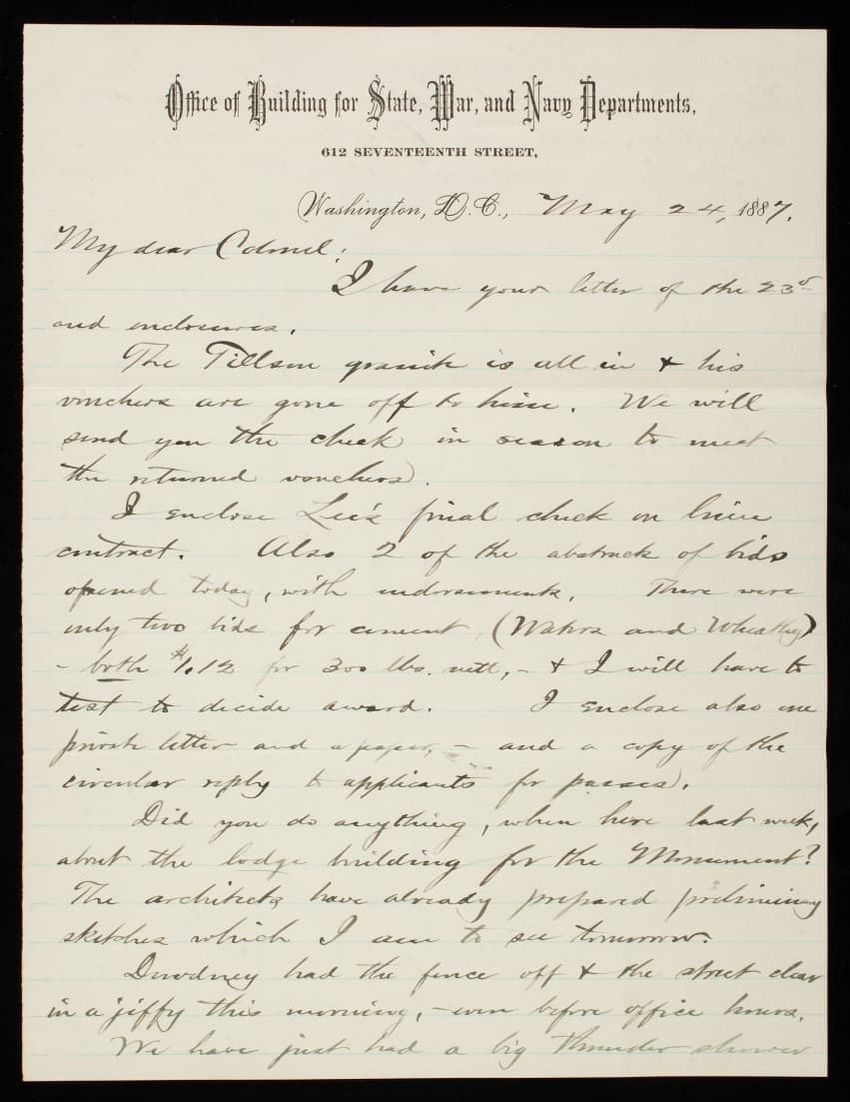 Office of Building for State, War, and Navy Departments,
612 SEVENTEENTH STREET,
Washington, D.C., May 24, 1887.
My dear Colonel:
I have your letter of the 23d
and enclosures.
The Tillson granite is all in & his
vouchers are gone off to him. We will
send you the check in season to meet
the returned vouchers.
I enclose Lee's final check on lime
contract. Also 2 of the abstracts of bids
opened today, with endorsements. There were
only two bids for cement (Waters and Wheatley)
- both $1.12 for 300 lbs. nett, - & I will have to
test to decide award. I enclose also one
private letter and a paper, - and a copy of the
circular reply to applicants for passes.
Did you do anything, when here last week,
about the lodge building for the Monument?
The architects have already prepared preliminary
sketches which I am to see tomorrow.
Dewdney had the fence off & the street clear
in a jiffy this morning, - even before office hours.
We have just had a big thunder shower